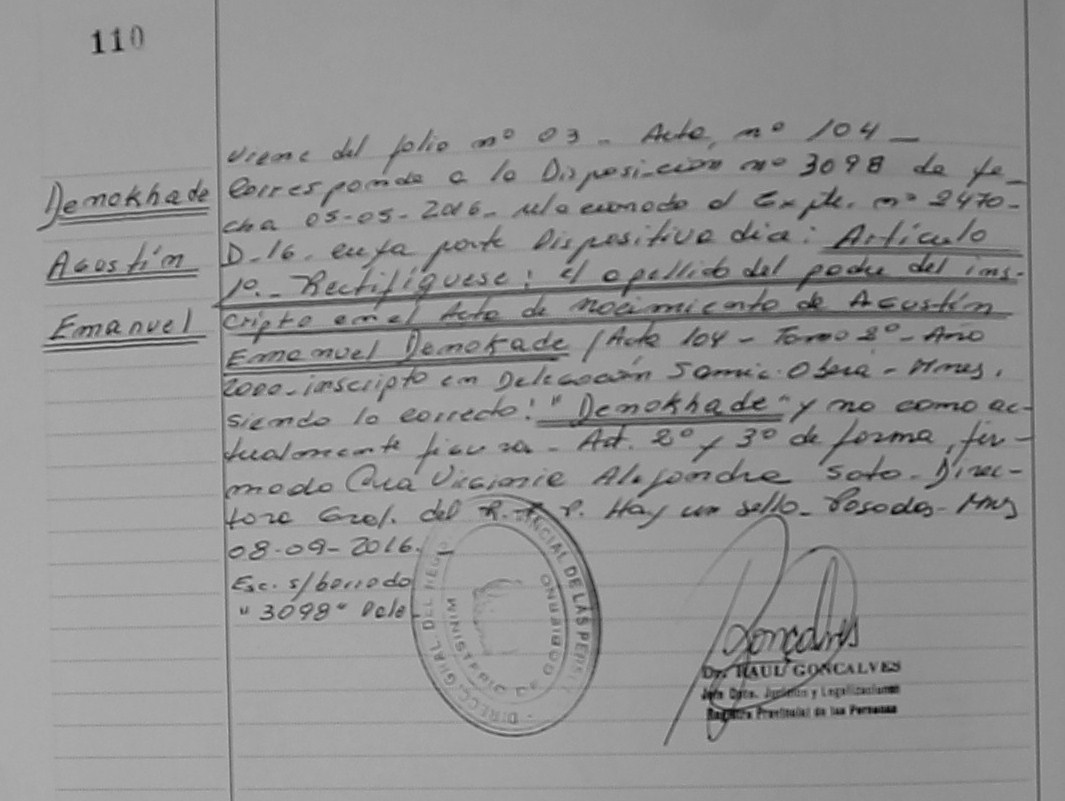 110
Demokhade
Agustín
Emanuel
viene del folio nº 03 - Acta, nº 104 -
Corresponde a la Disposición nº 3098 de fe-
cha 05-05-2016 - relacionado al Expte. nº 2470-
D-16. cuya parte Dispositiva dia: Artículo
1º.- Rectifíquese: el apellido del padre del ins-
cripto en el Acta de nacimiento de Agustín
Emanuel Demokade / Acta 104 - Tomo 2º - Año
2000 - inscripto en Delegación Samic. Oberá - Mnes,
siendo lo correcto: "Demokhade" y no como ac-
tualmente figura - Art. 2º y 3º de forma, fir-
mado Alejandra Soto - Direc-
tora Gral. del R. P. P. Hay un sello - Posadas - Mns
08-09-2016.
Esc. s/borrado
"3098" Vale.
DIRECC. GRAL. DEL REGIS. PROVINCIAL DE LAS PERS.
MINISTERIO DE GOBIERNO
Goncalves
Dr. RAUL GONCALVES
Jefe Dpto. Jurídico y Legalizaciones
Registro Provincial de las Personas